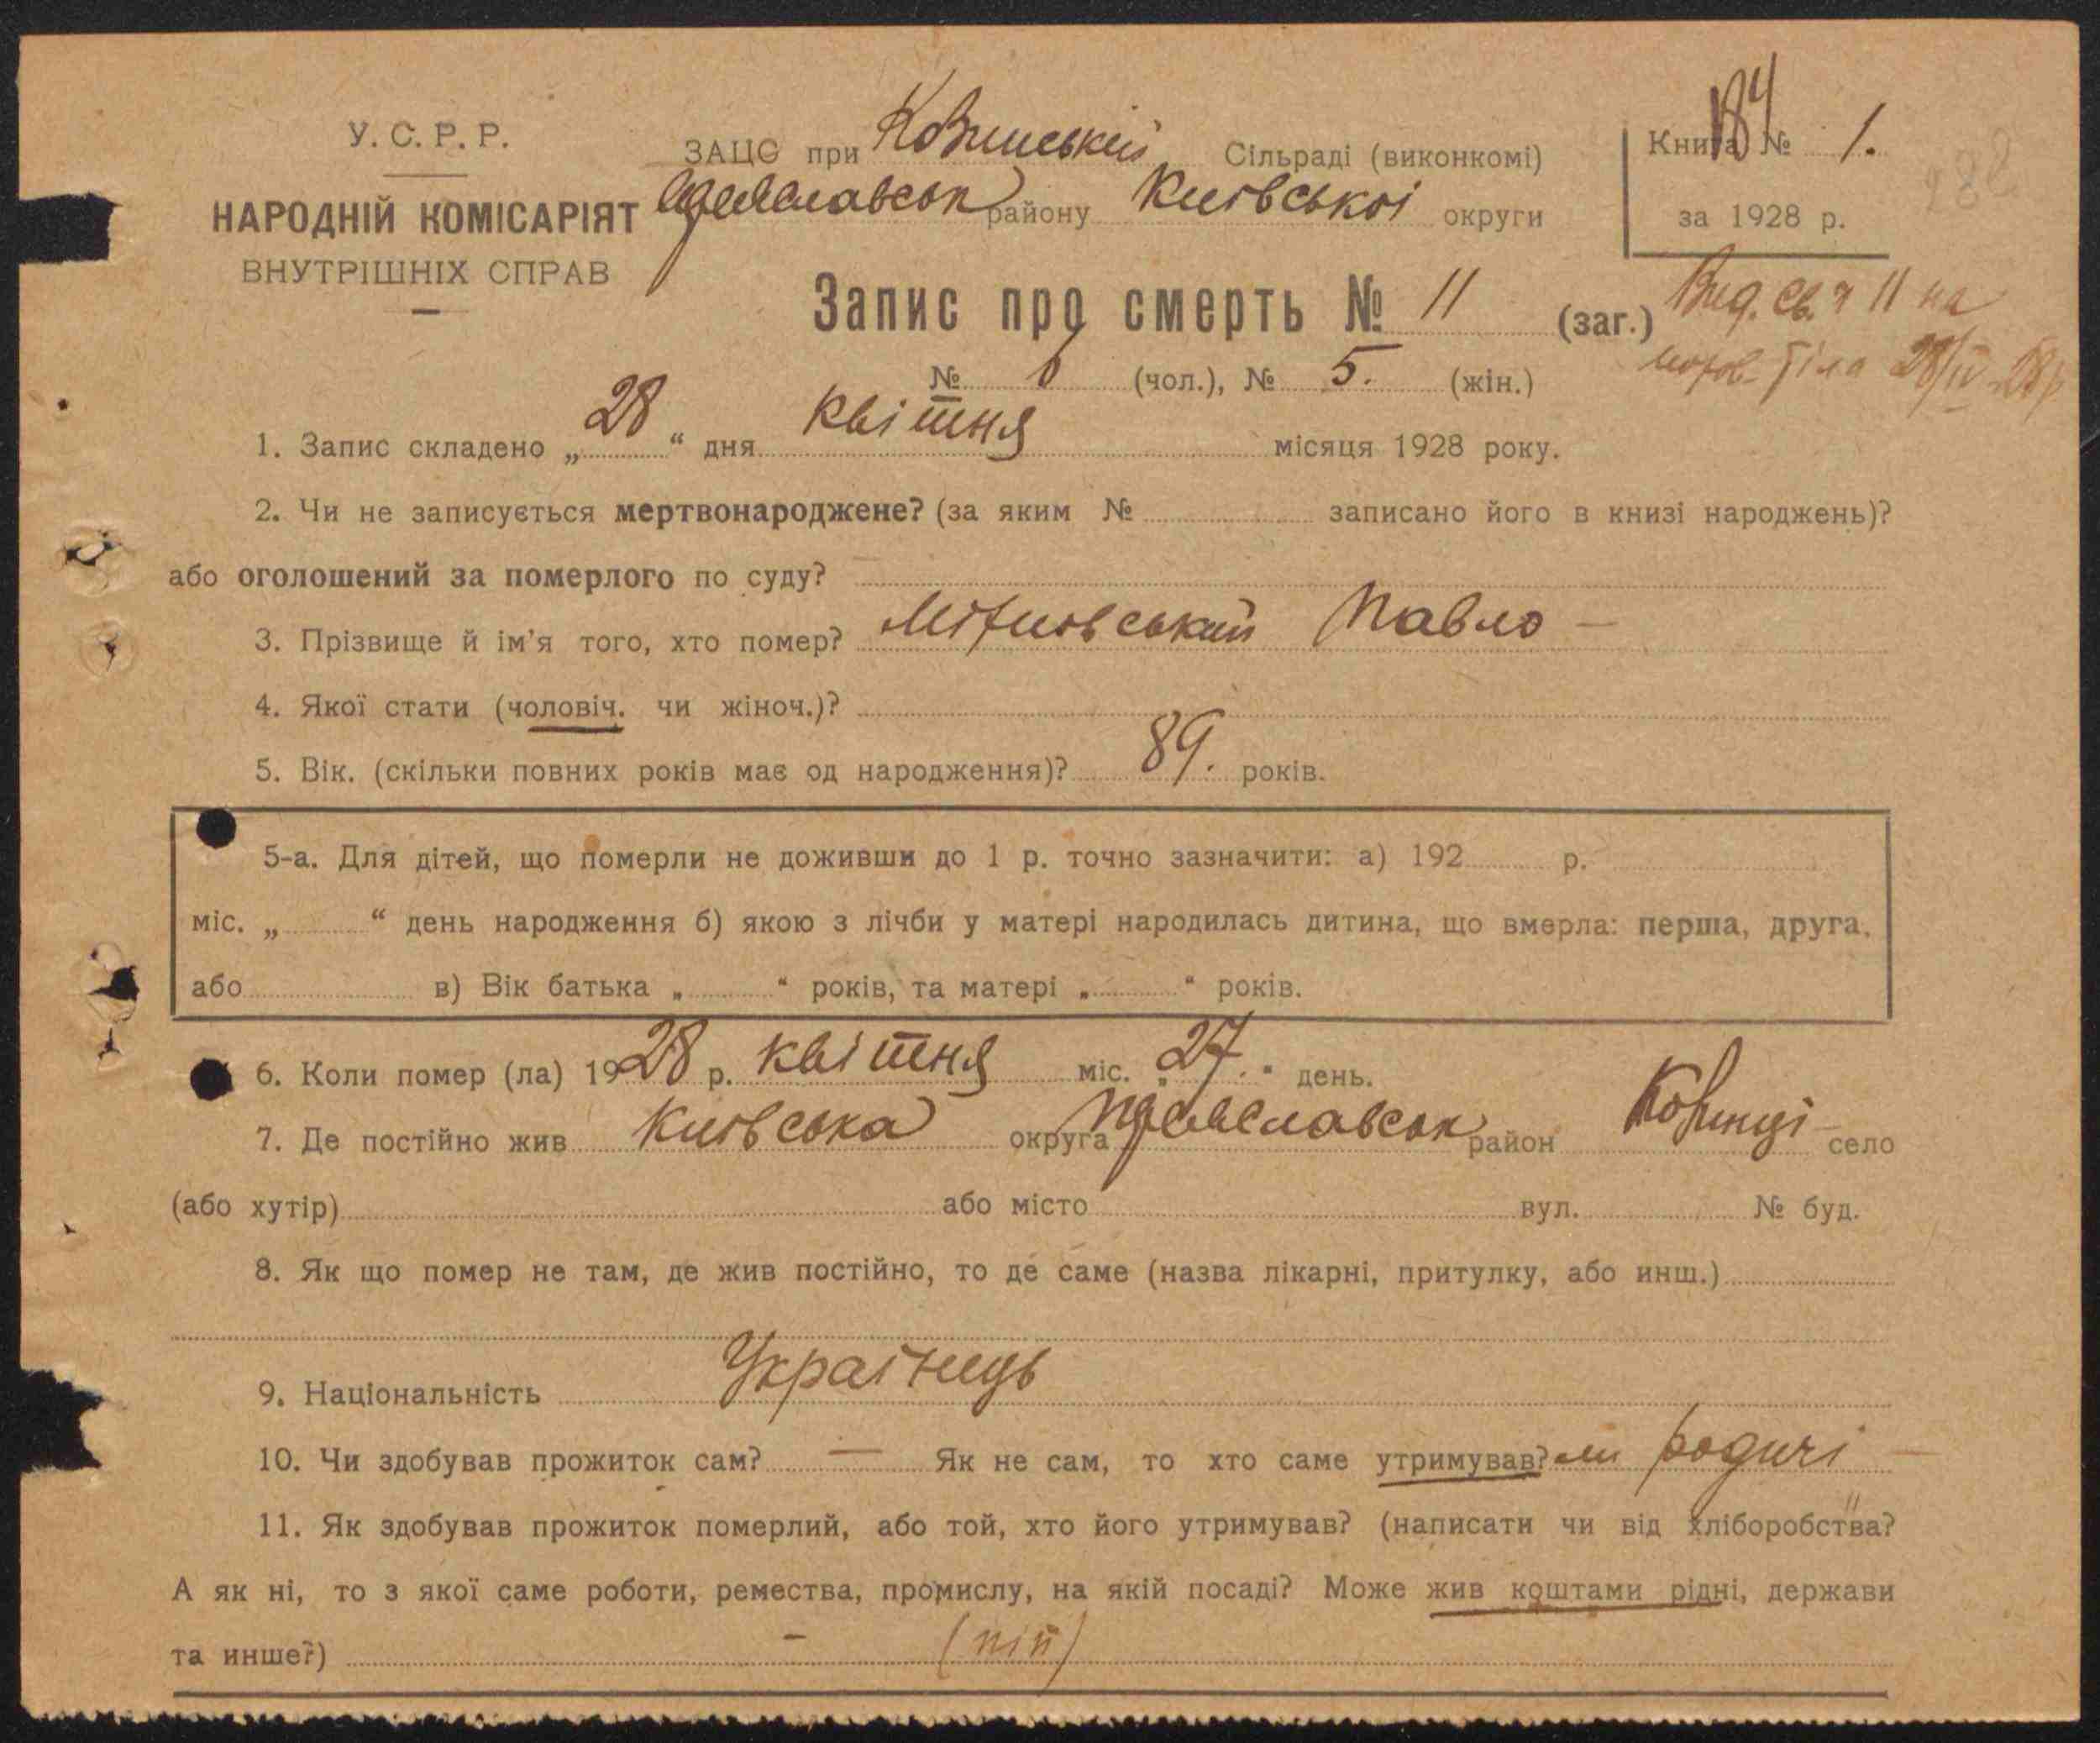 У.С.Р.Р.
НАРОДНІЙ КОМІСАРІЯТ
ВНУТРІШНІХ СПРАВ
ЗАЦС при Сільраді (виконкомі)
району Київської округи
184
Книга № 1.
за 1928 р.
Запис про смерть № 11 (заг.)
Вид. св. ч 11 на
похов. тіла 28/IV 28 р
№ 6 (чол.), № 5. (жін.)
1. Запис складено „28“ дня квітня місяця 1928 року.
2. Чи не записується мертвонароджене? (за яким № записано його в книзі народжень)?
або оголошений за померлого по суду? —
3. Прізвище й ім'я того, хто помер? Павло —
4. Якої стати (чоловіч. чи жіноч.)?
5. Вік. (скільки повних років має од народження)? 89. років.
5-а. Для дітей, що померли не доживши до 1 р. точно зазначити: а) 192 р.
міс. „ “ день народження б) якою з лічби у матері народилась дитина, що вмерла: перша, друга,
або в) Вік батька „ “ років, та матері „ “ років.
6. Коли помер (ла) 1928 р. квітня міс. „27.“ день.
7. Де постійно жив Київська округа район село
(або хутір) або місто вул. № буд.
8. Як що помер не там, де жив постійно, то де саме (назва лікарні, притулку, або инш.)
9. Національність Українець
10. Чи здобував прожиток сам? — Як не сам, то хто саме утримував? ли родичі —
11. Як здобував прожиток померлий, або той, хто його утримував? (написати чи від хліборобства?
А як ні, то з якої саме роботи, ремества, промислу, на якій посаді? Може жив коштами рідні, держави
та инше?) - (піп)